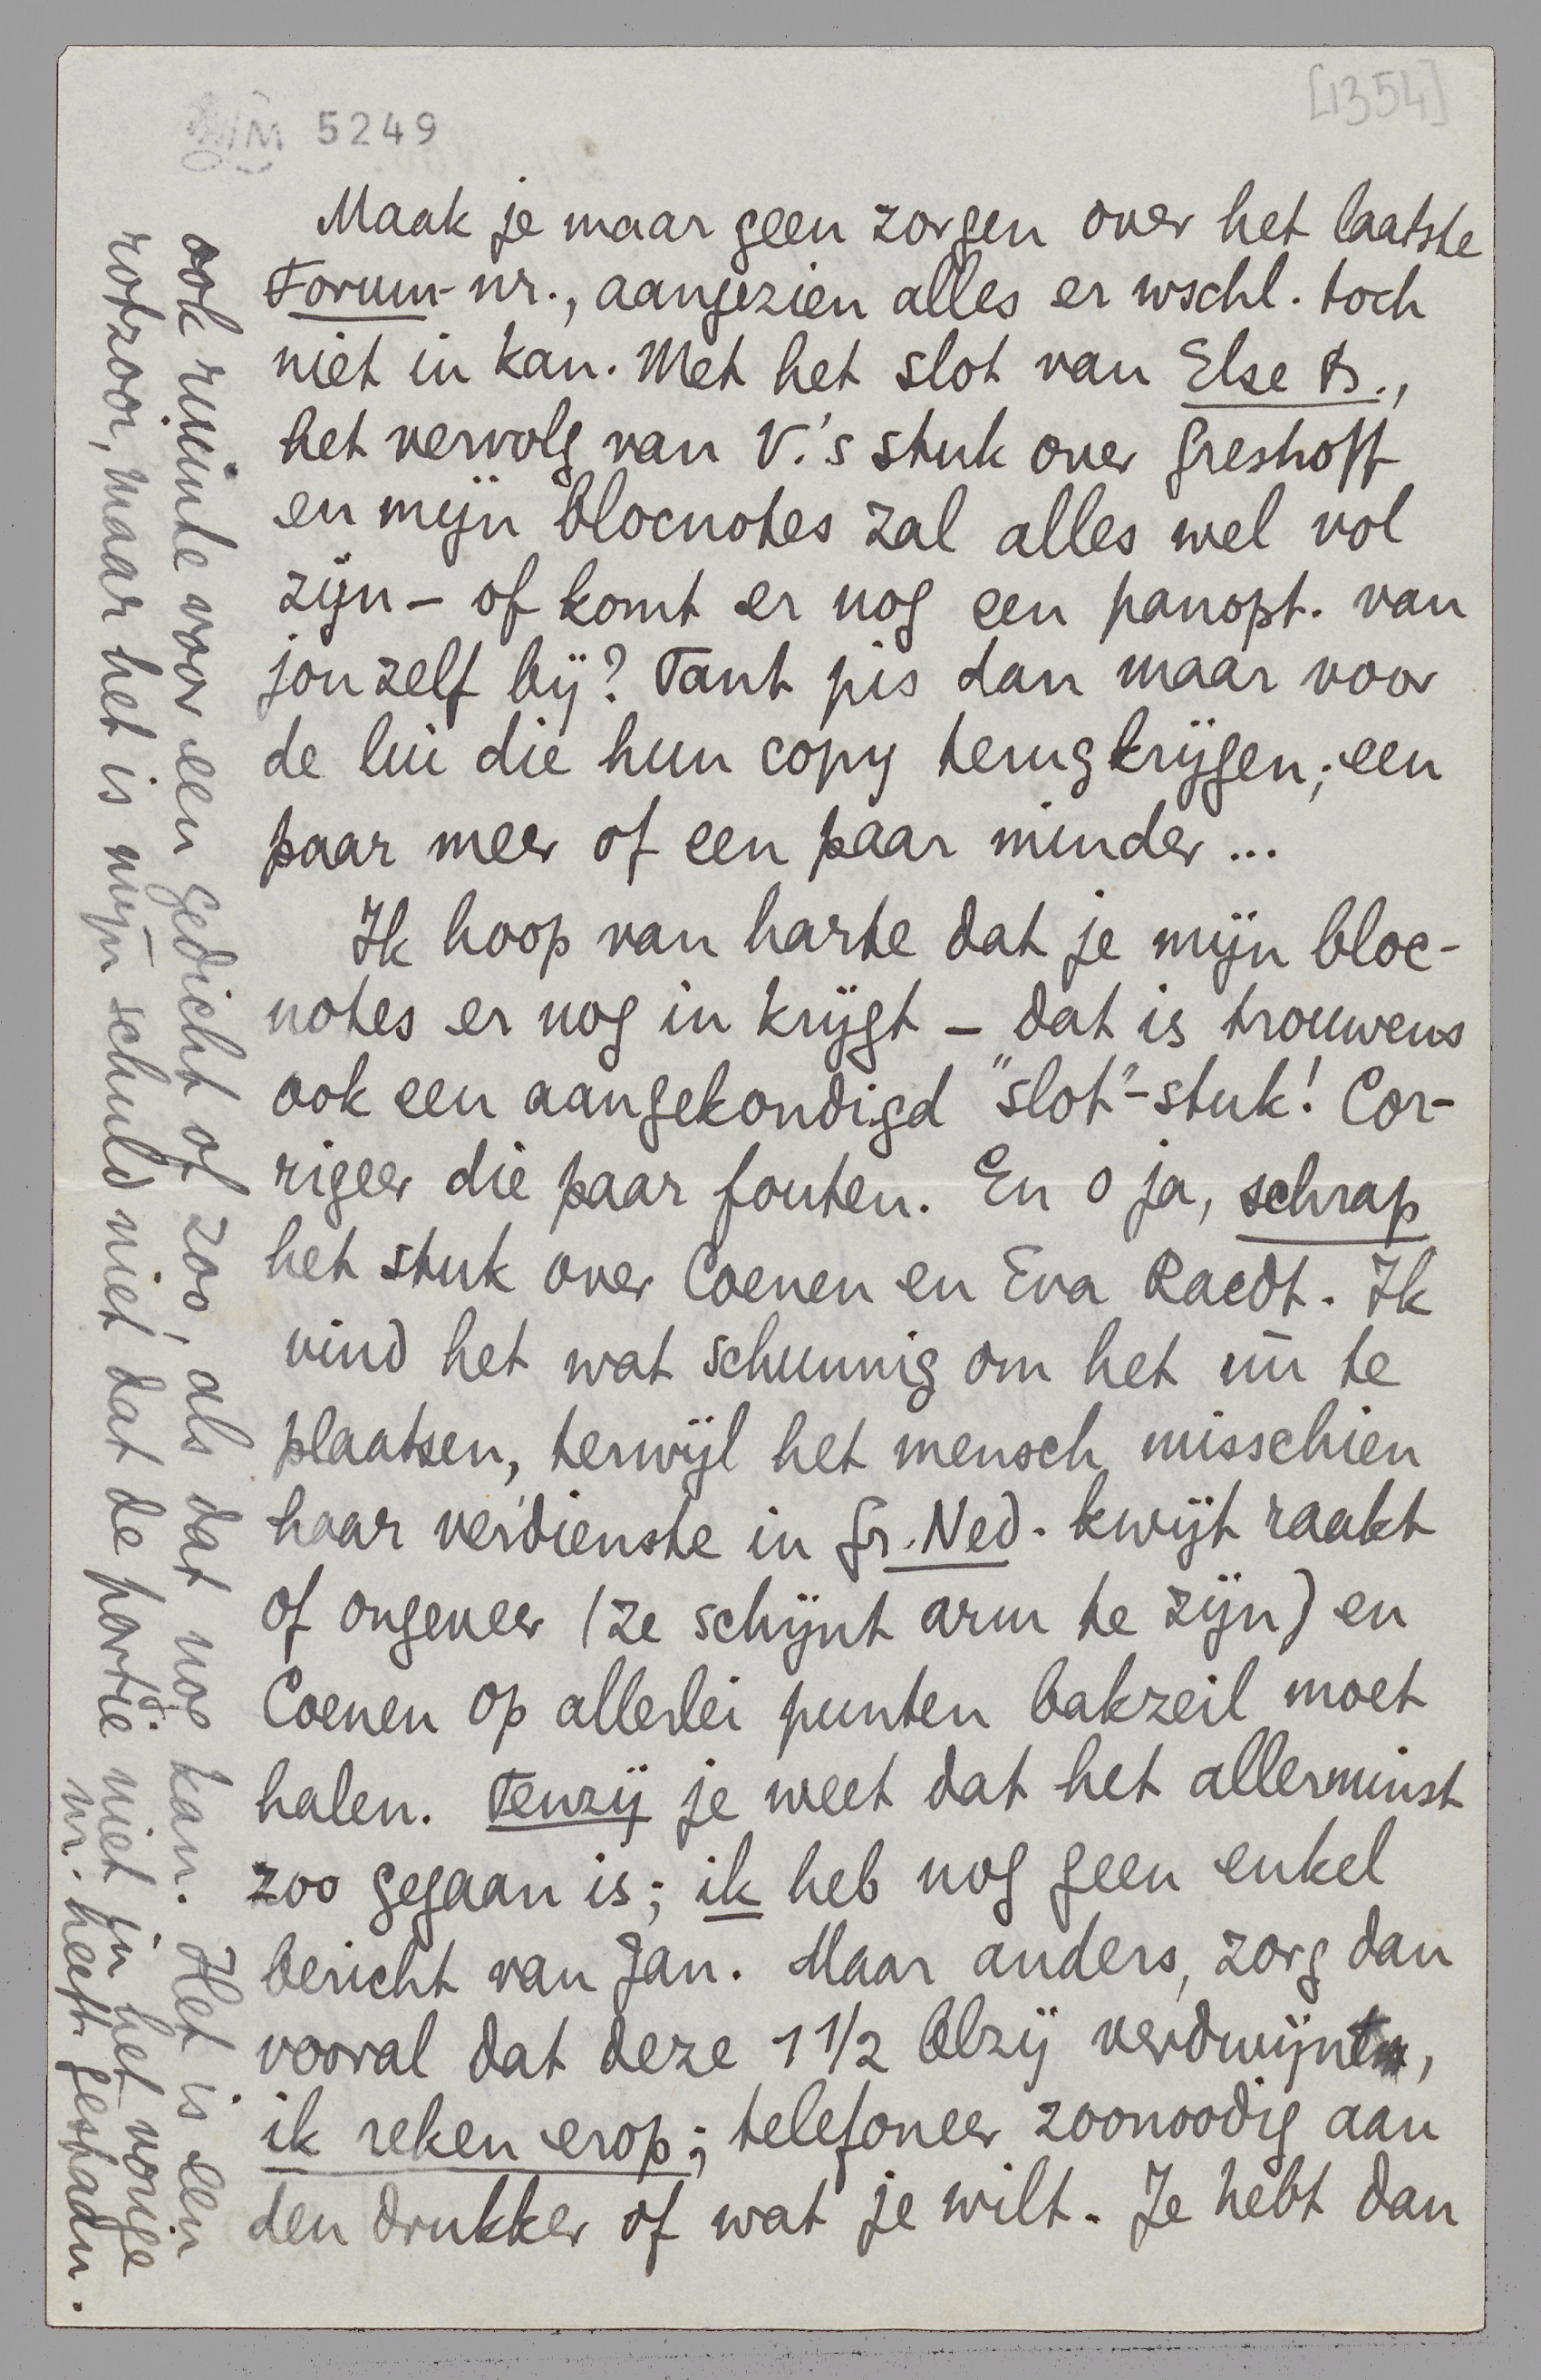 [1354]
M 5249
Maak je maar geen zorgen over het laatste
Forum-nr., aangezien alles er wschl. toch
niet in kan. Met het slot van Else B.,
het vervolg van V.'s stuk over Greshoff
en mijn blocnotes zal alles wel vol
zijn – of komt er nog een panopt. van
jou zelf bij? Tant pis dan maar voor
de lui die hun copy terugkrijgen; een
paar meer of een paar minder ...
Ik hoop van harte dat je mijn bloc-
notes er nog in krijgt – dat is trouwens
ook een aangekondigd "slot"-stuk! Cor-
rigeer die paar fouten. En o ja, schrap
het stuk over Coenen en Eva Raedt. Ik
vind het wat schunnig om het nù te
plaatsen, terwijl het mensch misschien
haar verdienste in Gr. Ned. kwijt raakt
of ongeveer (ze schijnt arm te zijn) en
Coenen op allerlei punten bakzeil moet
halen. Tenzij je weet dat het allerminst
zoo gegaan is; ik heb nog geen enkel
bericht van Jan. Maar anders, zorg dan
vooral dat deze 1 1/2 blzij verdwijnt,
ik reken erop; telefoneer zoonoodig aan
den drukker of wat je wilt. Je hebt dan
ook ruimte voor een gedicht of zoo, als dat nog kan. Het is een
rotzooi, maar het is mijn schuld niet dat de partie niet in het vorige
nr. heeft gestaan.